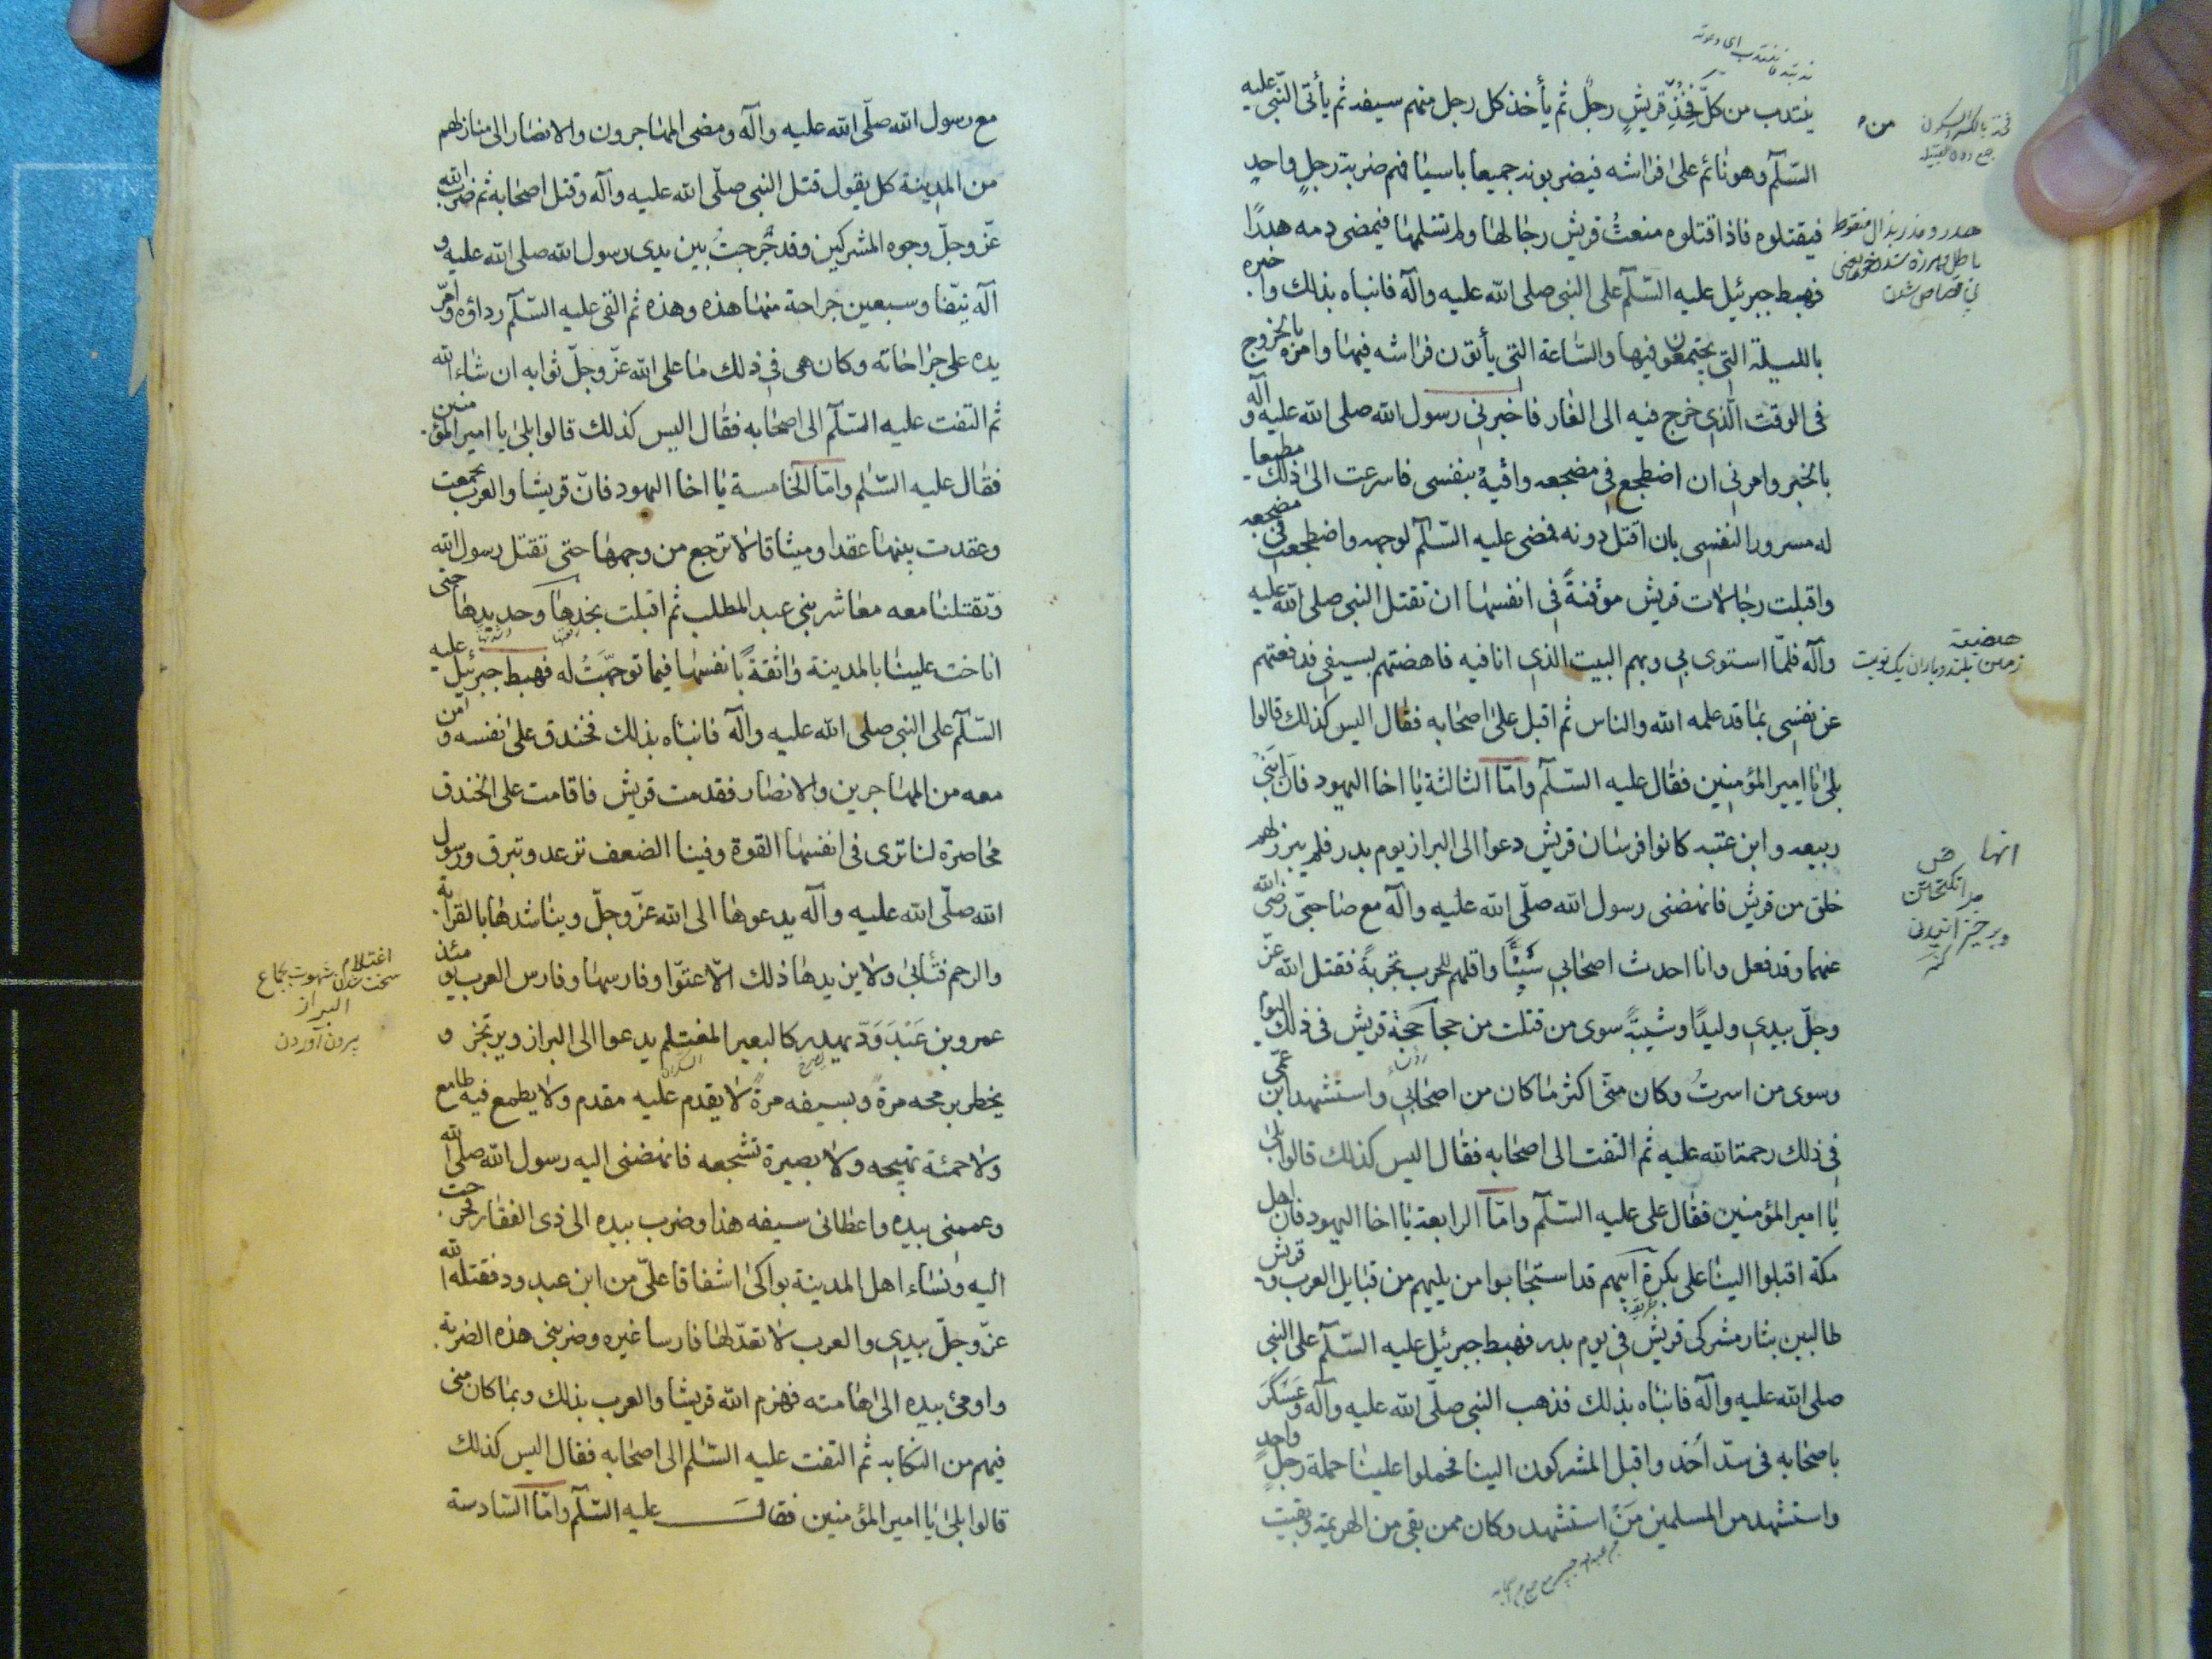 ينتدب من كلّ فخذ قريشٍ رجلٌ ثم يأخذ كل رجل منهم سيفه ثم يأتى النّبى عليه
السّلم وهو نائم على فراشه فيضربونه جميعا باسيافهم ضربة رجلٍ واحدٍ
فيقتلوه فاذا قتلوه منعتْ قريش رجالها ولم تسلمها فيمضى دمه هدرًا
فهبط جبرئيل عليه السّلم على النبى صلى الله عليه وآله فانباه بذلك واخبره
بالليلة التى يجتمعون فيها والسّاعة التى يأتون فراشه فيها وامره بالخروج
فى الوقت الّذى خرج فيه الى الغار فاخبرنى رسول الله صلى الله عليه وآله
بالخبر وامرنى ان اضطجع فى مضجعه واقيهُ بنفسى فاسرعت الى ذلك مطيعا
له مسرورا لنفسى بان اقتل دونه فمضى عليه السّلم لوجهه واضطجعت فى مضجعه
واقبلت رجالات قريش موقنةً فى انفسها ان تقتل النبى صلى الله عليه
وآله فلمّا استوى بى وبهم البيت الذى انا فيه ناهضتهم بسيفى فدفعتهم
عن نفسى بما قد علمه الله والناس ثم اقبل على اصحابه فقال اليس كذلك قالوا
بلى يا امير المؤمنين فقال عليه السّلم وامّا الثالثة يا اخا اليهود فان ابنى
ربيعه وابن عتبه كانوا فرسان قريش دعوا الى البراز يوم بدر فلم يبرز لهم
خلق من قريش فانهضنى رسول الله صلّى الله عليه وآله مع صاحبىّ رضى الله
عنهما وقد فعل وانا احدث اصحابى سنًّا واقلهم للحرب تجربةً فقتل الله عزّ
وجلّ بيدى وليدًا وشيبةً سوى من قتلت من جحاجحة قريش فى ذلك اليوم
وسوى من اسرتُ وكان منّى اكثر مما كان من اصحابى واستشهد ابن عمّى
فى ذلك رحمة الله عليه ثم التفت الى اصحابه فقال اليس كذلك قالوا بلى
يا امير المؤمنين فقال على عليه السّلم وامّا الرابعة يا اخا اليهود فان اهل
مكة اقبلوا الينا على بكرة ابيهم قد استجابوا من يليهم من قبايل العرب وقريش
طالبين بثار مشركى قريش فى يوم بدر فهبط جبرئيل عليه السّلم على النبى
صلى الله عليه وآله فانباه بذلك فذهب النبى صلّى الله عليه وآله وعَسْكَرَ
باصحابه فى سدّ اُحُد واقبل المشركون الينا فحملوا علينا حملة رجلٍ واحدٍ
واستشهد من المسلمين مَنْ استشهد وكان ممن بقى من الهزيمة وبقيت
مع رسول الله صلّى الله عليه وآله ومضى المهاجرون والانصار الى منازلهم
من المدينة كل يقول قتل النبى صلّى الله عليه وآله وقتل اصحابه ثم ضرب الله
عزّ وجلّ وجوه المشركين وقد جُرحتُ بين يدى رسول الله صلى الله عليه و
آله نيّفا وسبعين جراحة منها هذه وهذه ثم القى عليه السّلم رداؤه وامرّ
يده على جراحاته وكان منى فى ذلك ما على الله عزّ وجلّ ثوابه ان شاء الله
ثم التفت عليه السّلم الى اصحابه فقال اليس كذلك قالوا بلى يا امير المؤمنين
فقال عليه السّلم وامّا الخامسة يا اخا اليهود فانّ قريشا والعرب تجمعت
وعقدت بينها عقدا وميثاقا لا ترجع من وجهها حتى تقتل رسول الله
وتقتلنا معه معاشر بنى عبد المطلب ثم اقبلت بحدها وحديدها حتى
اناخت علينا بالمدينة واثقةً بانفسها فيما توجّهتْ له فهبط جبرئيل عليه
السّلم على النبى صلى الله عليه وآله فانباه بذلك فخندق على نفسه ومن
معه من المهاجرين والانصار فقدمت قريش فاقامت على الخندق
محاصرة لنا ترى فى انفسها القوة وفينا الضعف ترعد وتبرق ورسول
الله صلّى الله عليه وآله يدعوها الى الله عزّ وجلّ ويناشدها بالقرابة
والرحم فتأبى ولا يزيدها ذلك الّا عتوّا وفارسها وفارس العرب يومئذ
عمرو بن عَبْدَ وَدّ يهدر كالبعير المغتلم يدعوا الى البراز ويرتجز و
يخطر برمحه مرةً وبسيفه مرةً لا يقدم عليه مقدم ولا يطمع فيه طامع
ولا حمئة تهيجه ولا بصيرة تشجعه فانهضنى اليه رسول الله صلى الله
وعممنى بيده واعطانى سيفه هذا وضرب بيده الى ذى الفقار فخرجت
اليه ونساء اهل المدينة بواكى اشفاقا علىّ من ابن عبد ود فقتله الله
عزّ وجلّ بيدى والعرب لا تعدّ لها فارسا غيره وضربنى هذه الضربة
واومئ بيده الى هامته فهزم الله قريشا والعرب بذلك وبما كان منى
فيهم من النكاية ثم التفت عليه السّلم الى اصحابه فقال اليس كذلك
قالوا بلى يا امير المؤمنين فقال عليه السّلم وامّا السّادسة
اغتلام
سخت شدن شهوت بجماع
البراز
بيرون آوردن